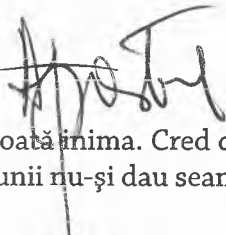 oată inima. Cred c
unii nu-și dau sean